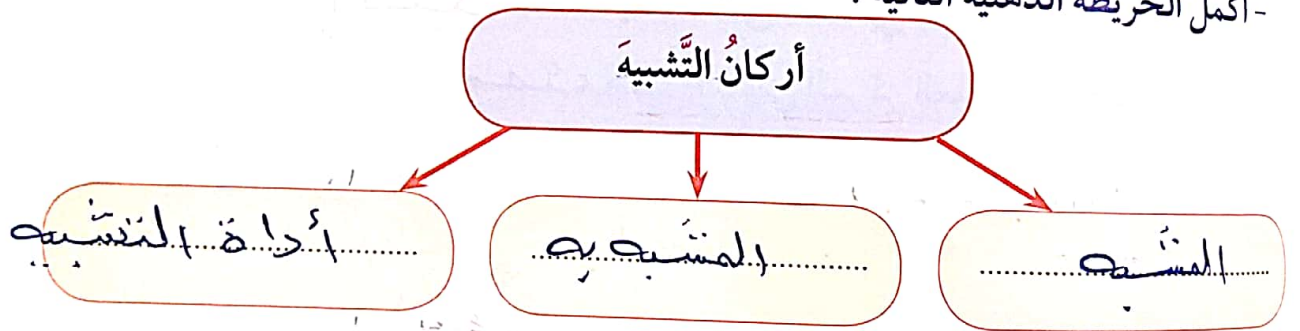 - أكمل الخريطة الذهنية التالية :
أركانُ التَّشبيهَ
المشَبه
المشَبه به
أداة التشَبيه